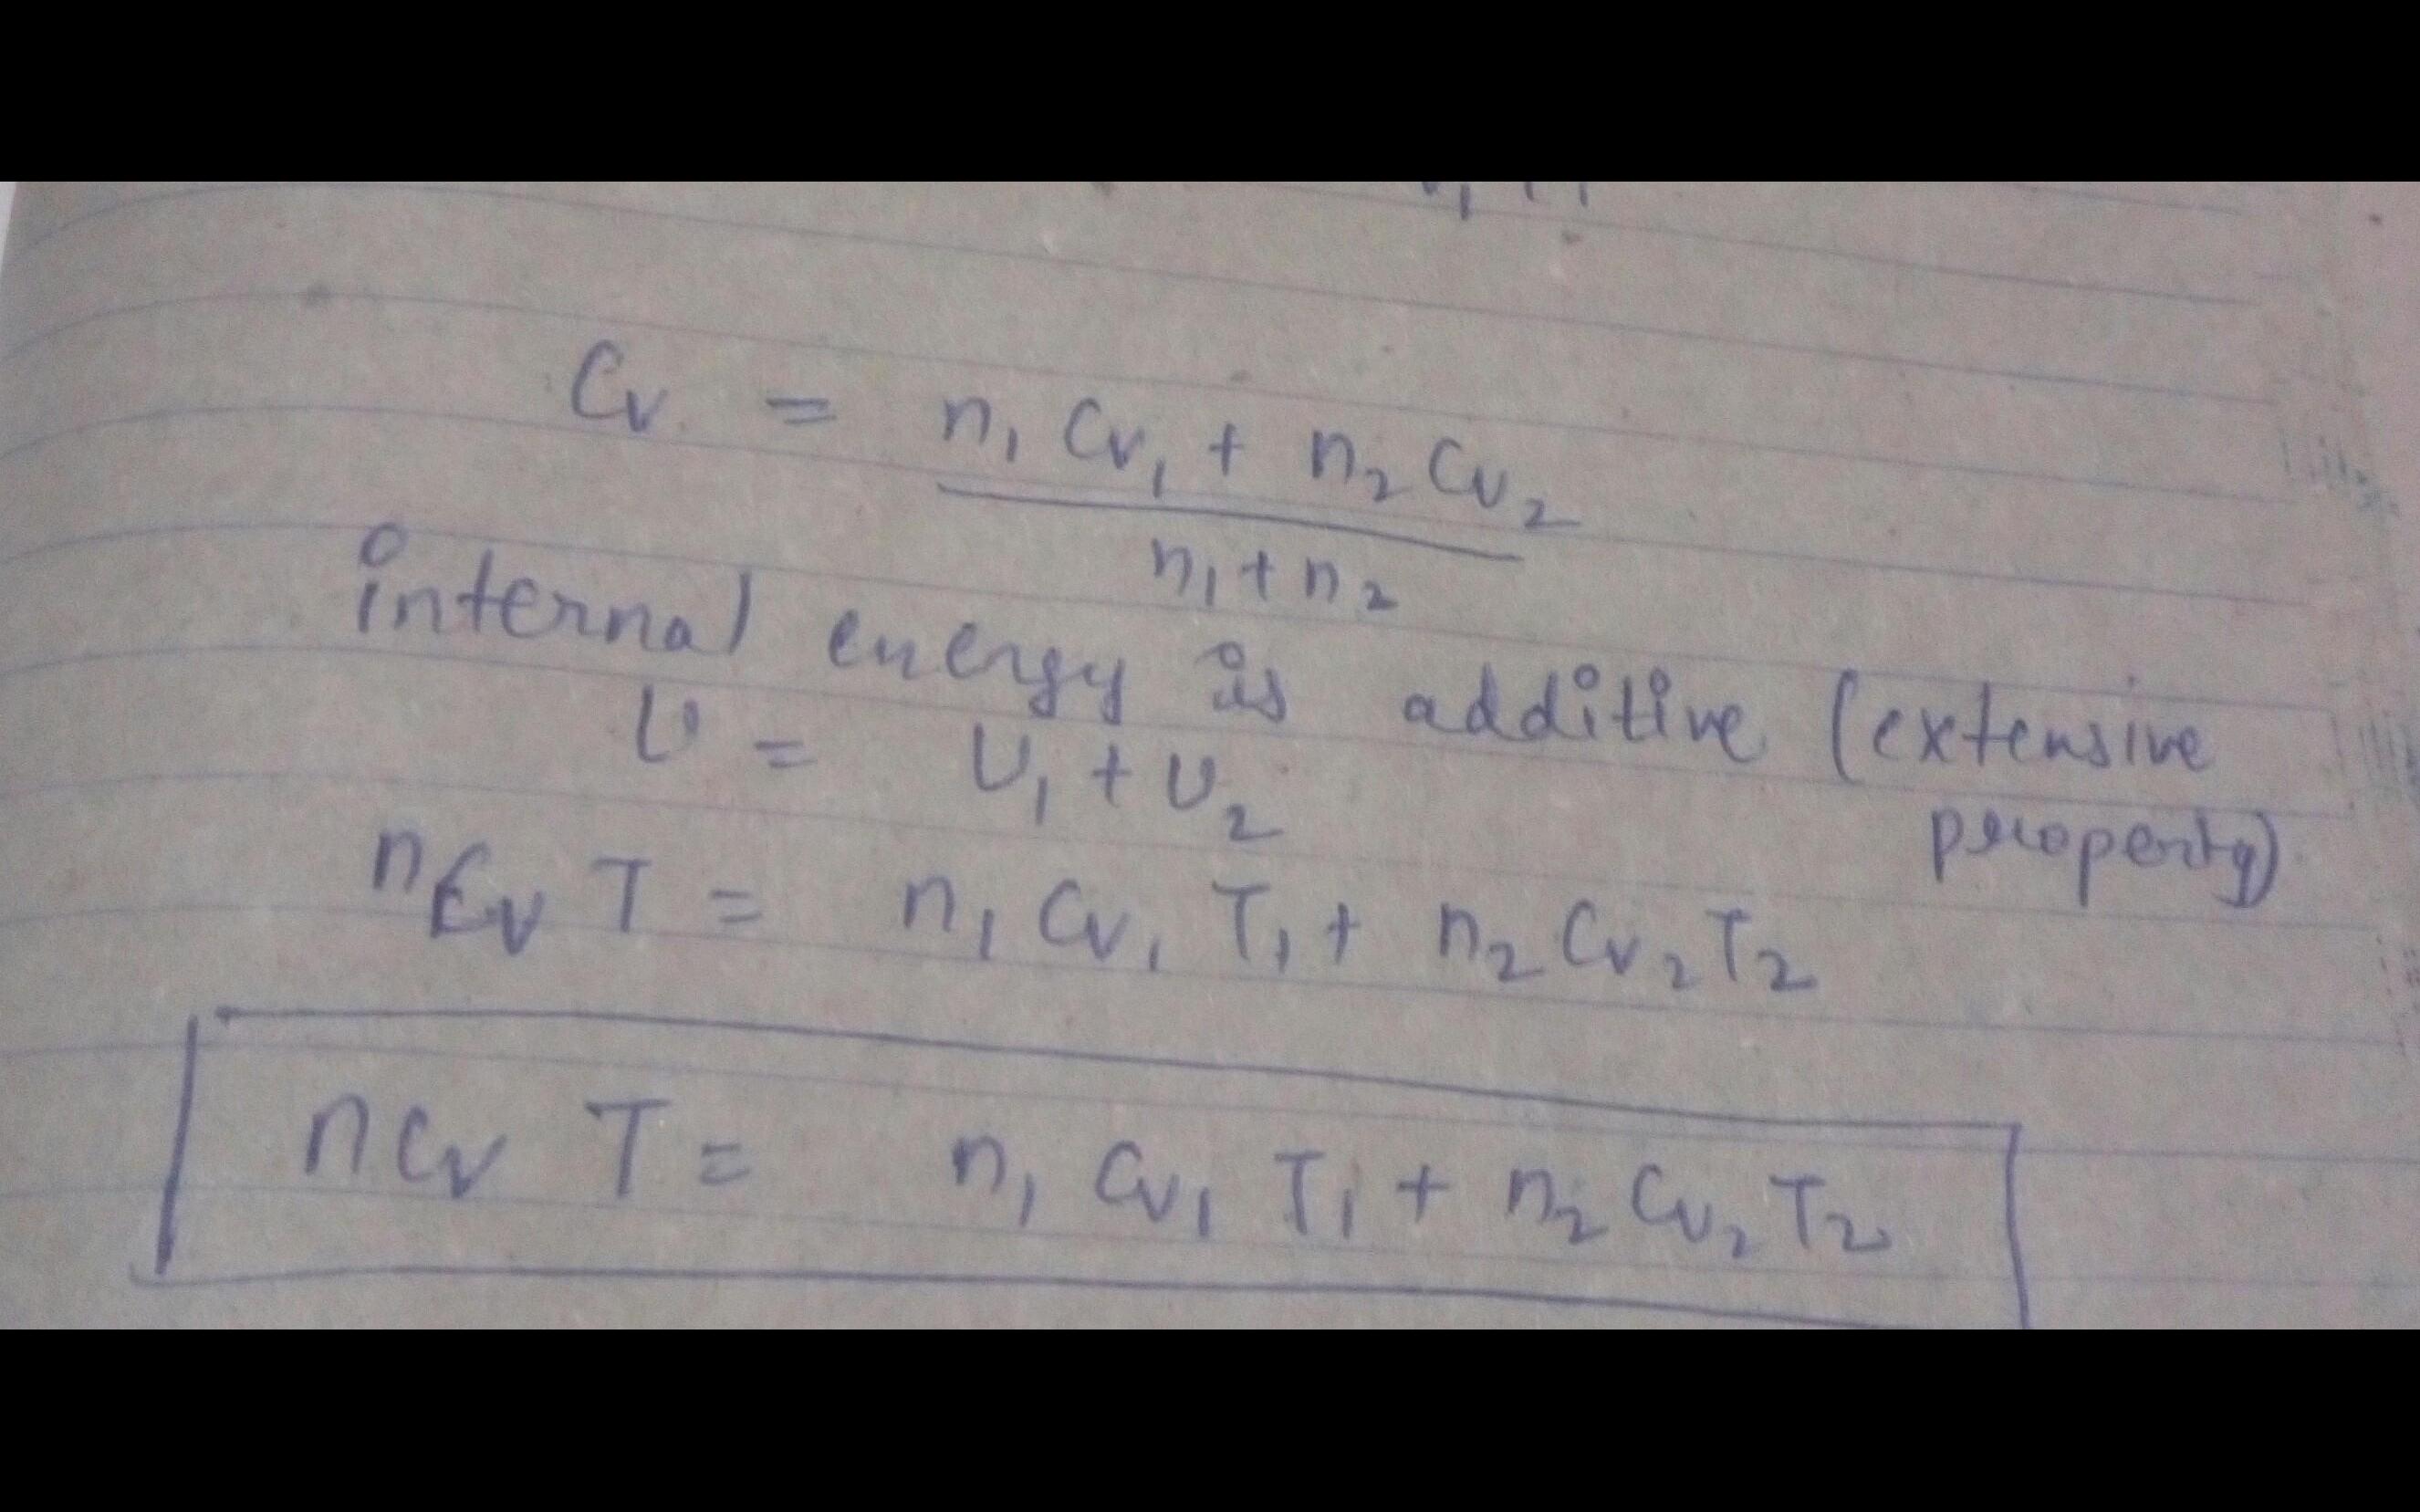 Cv = n₁ Cv₁ + n₂ Cv₂
n₁ + n₂
internal energy is additive (extensive
property)
U = U₁ + U₂
n Cv T = n₁ Cv₁ T₁ + n₂ Cv₂ T₂
n Cv T = n₁ Cv₁ T₁ + n₂ Cv₂ T₂